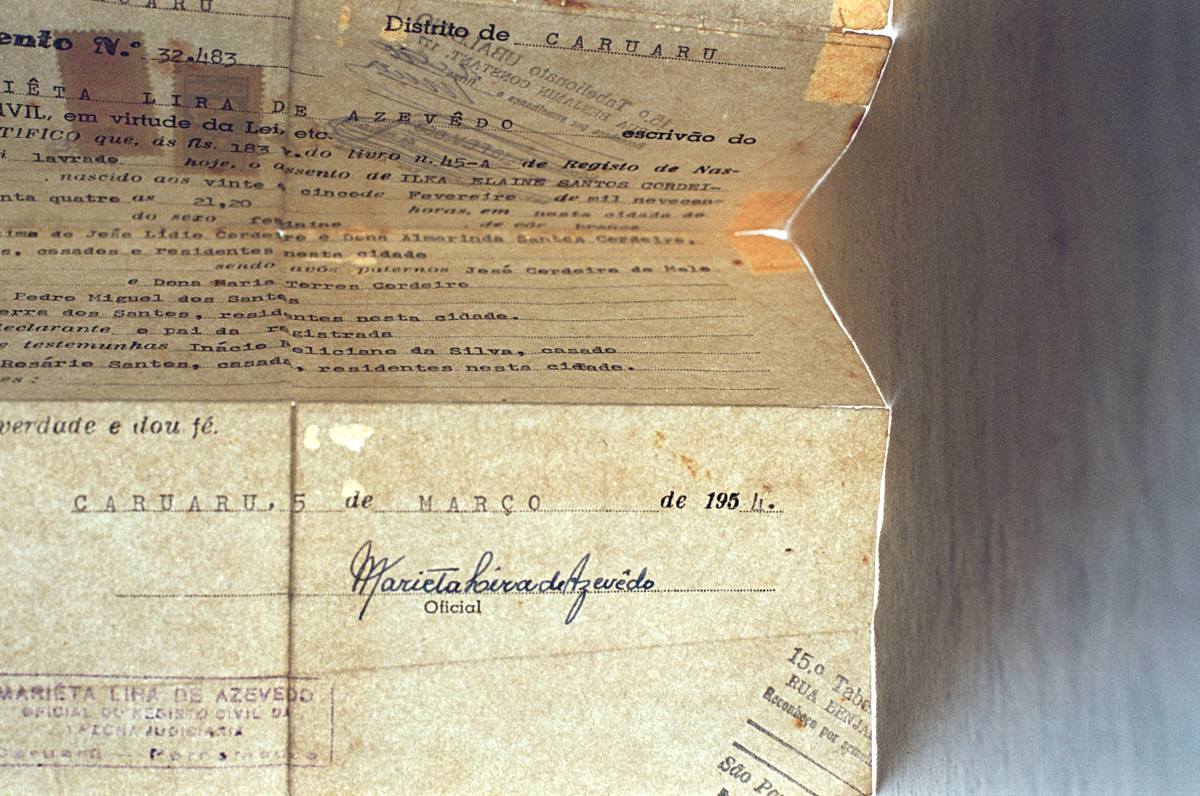 ARU
Distrito de CARUARU
ento N.º 32.483
IÊTA LIRA DE AZEVÊDO escrivão do
IVIL, em virtude da Lei, etc.
TIFICO que, ás fls. 183 v. do livro n. 45-A de Registo de Nas-
i lavrado hoje, o assento de ILKA ELAINE SANTOS CORDEI-
nascido aos vinte e cincode Fevereiro de mil novecen-
nta quatro as 21,20 horas, em nesta cidade de
do sexo feminino de côr branca
ima de João Lidio Cordeiro e Dona Almerinda Santos Cordeiro.
s, casados e residentes nesta cidade
sendo avós paternos José Cordeiro de Melo
e Dona Maria Torres Cordeiro
Pedro Miguel dos Santos
erra dos Santos, residentes nesta cidade.
declarante o pai da registrada
e testemunhas Inácio Feliciano da Silva, casado
Rosário Santos, casada, residentes nesta cidade.
es:
verdade e dou fé.
CARUARU, 5 de MARÇO de 1954.
Mariêta Lira de Azevêdo
Oficial
MARIÊTA LIRA DE AZEVEDO
OFICIAL DO REGISTO CIVIL DA
1.a ZONA JUDICIARIA
Caruarú — Pernambuco
15.o Tabe
RUA BENJA
Reconheço por semel
São Pa